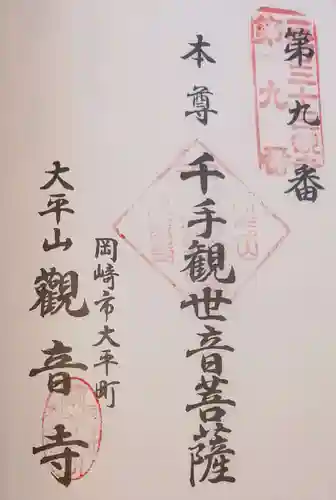 第九番
本尊
千手観世音菩薩
岡崎市大平町
大平山
觀音寺